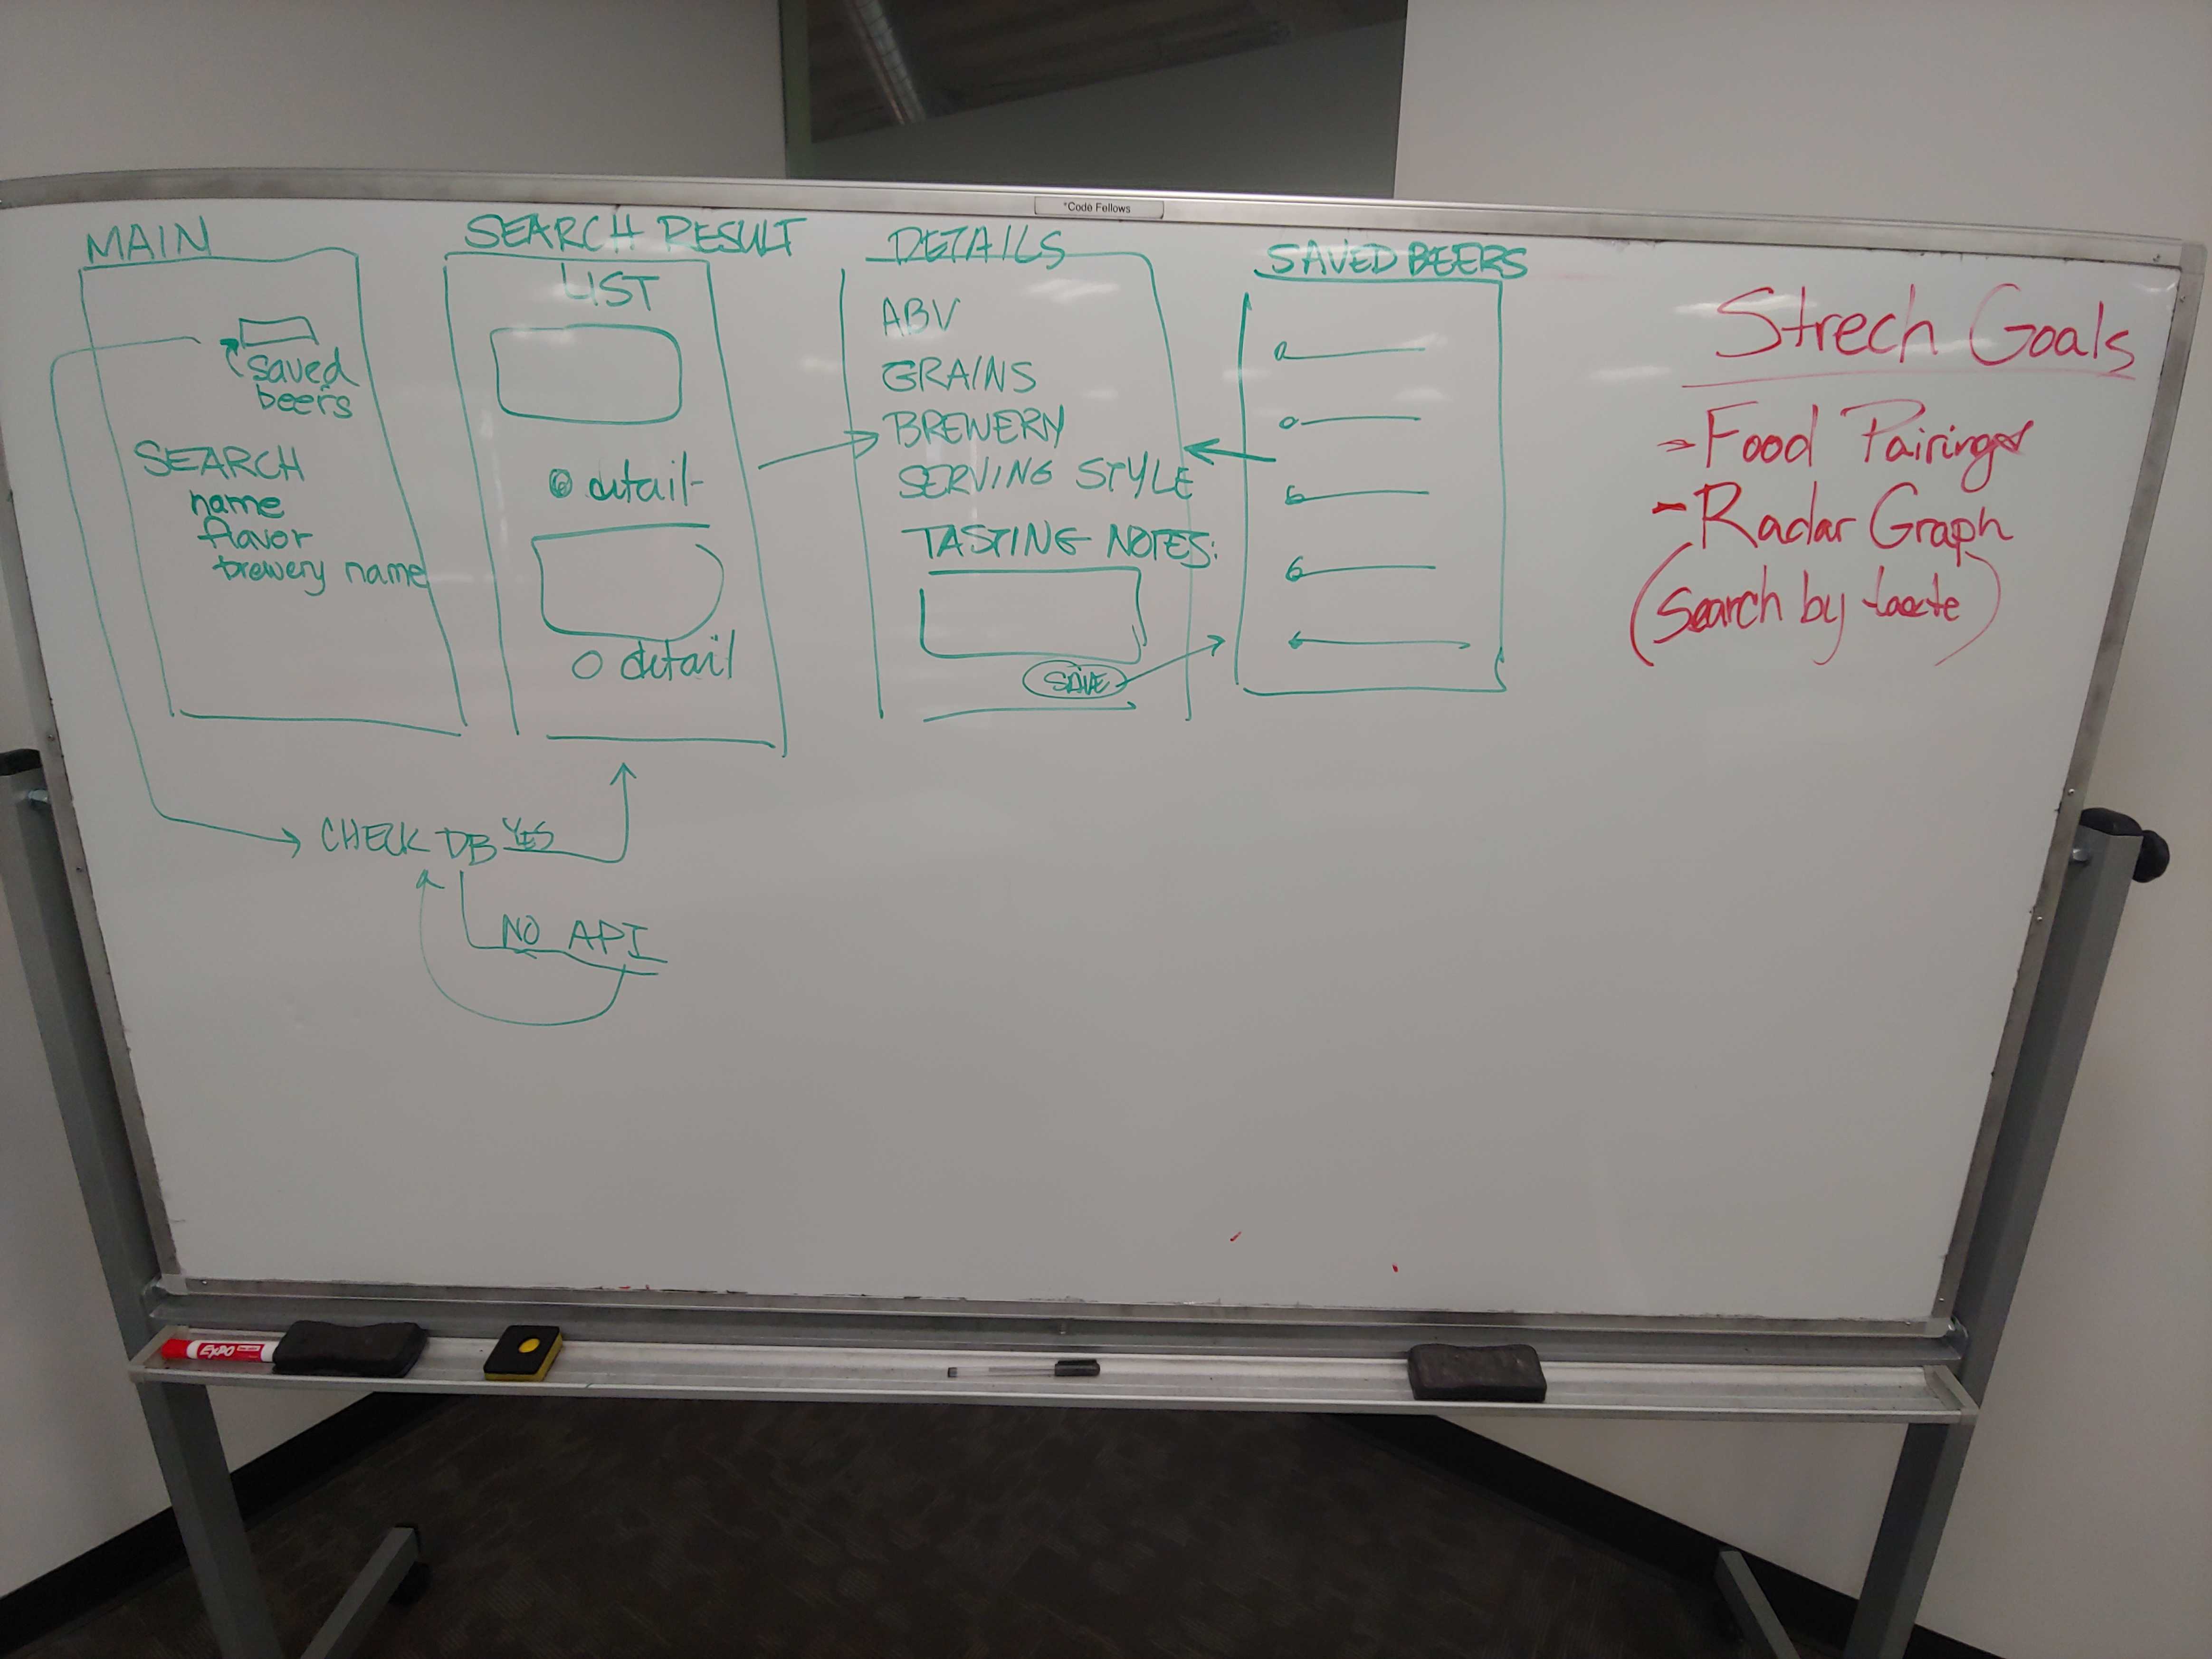 *Code Fellows
MAIN
saved
beers
SEARCH
name
flavor
brewery name
SEARCH RESULT
LIST
detail
detail
DETAILS
ABV
GRAINS
BREWERY
SERVING STYLE
TASTING NOTES:
SAVE
SAVED BEERS
CHECK DB YES
NO API
Strech Goals
- Food Pairings
- Radar Graph
(Search by taste)
EXPO